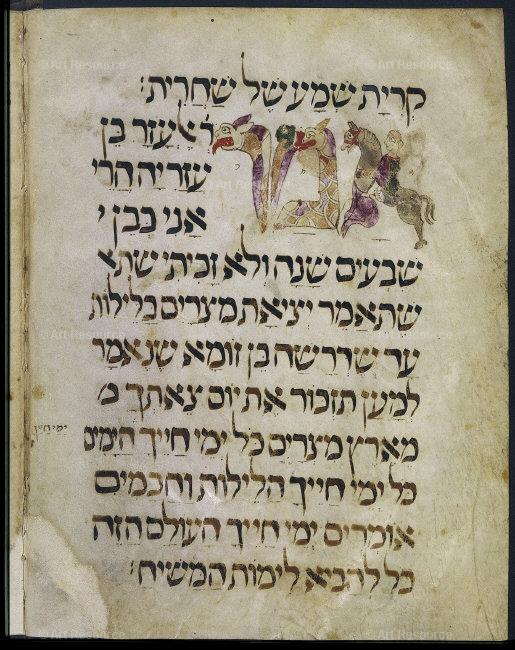 קרית שמע של שחרית:
אמר ר אלעזר בן
עזריה הרי
אני כבן י
שבעים שנה ולא זכיתי שתא
שתאמר יציאת מצרים בלילות
עד שדרשה בן זומא שנאמר
למען תזכור את יום צאתך מ
מארץ מצרים כל ימי חייך הימים
ימי חייך
כל ימי חייך הלילות וחכמים
אומרים ימי חייך העולם הזה
כל להביא לימות המשיח:
© Art Resource